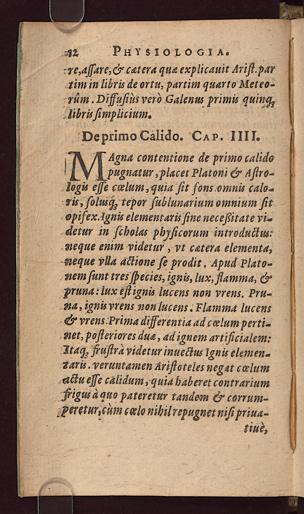 12 PHYSIOLOGIA.
re, assare, & cætera quæ explicauit Arist. par
tim in libris de ortu, partim quarto Meteo-
rûm. Diffusiùs verò Galenus primis quinq;
libris simplicium.
De primo Calido. CAP. IIII.
MAgna contentione de primo calido
pugnatur, placet Platoni & Astro-
logis esse cœlum, quia sit fons omnis calo-
ris, soliusq; tepor sublunarium omnium sit
opifex. Ignis elementaris sine necessitate vi-
detur in scholas physicorum introductus:
neque enim videtur, vt cætera elementa,
neque vlla actione se prodit. Apud Plato-
nem sunt tres species, ignis, lux, flamma, &
pruna: lux est ignis lucens non vrens. Pru-
na, ignis vrens non lucens. Flamma lucens
& vrens. Prima differentia ad cœlum perti-
net, posteriores duæ, ad ignem artificialem:
Itaq; frustrà videtur inuectus Ignis elemen-
taris. veruntamen Aristoteles negat cœlum
actu esse calidum, quia haberet contrarium
frigus à quo pateretur tandem & corrum-
peretur, cùm cœlo nihil repugnet nisi priua-
tiuè,